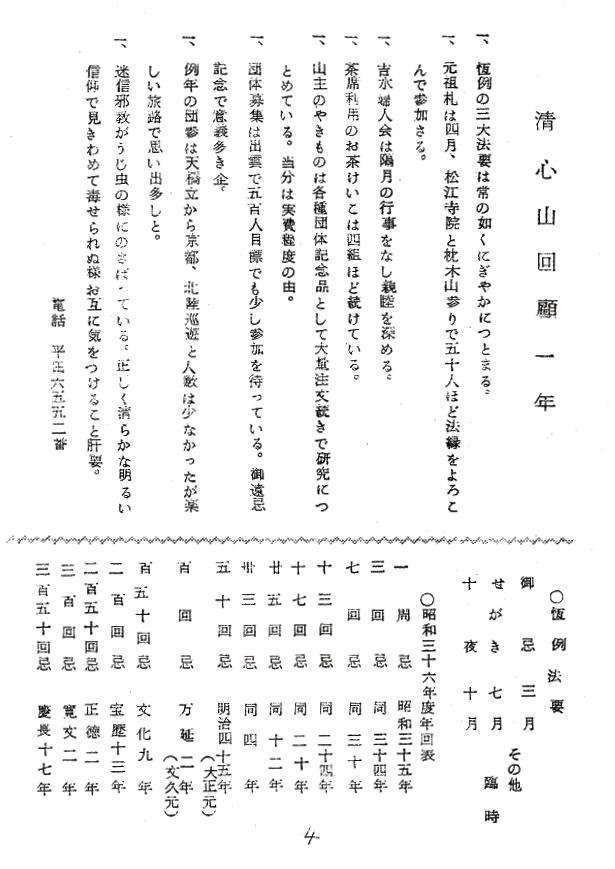 清心山回顧一年
一、恆例の三大法要は常の如くにぎやかにつとまる。
一、元祖札は四月、松江寺院と枕木山参りで五十人ほど法縁をよろこ
んで参加さる。
一、吉水婦人会は隔月の行事をなし親睦を深める。
一、茶席利用のお茶けいこは四組ほど続けている。
一、山主のやきものは各種団体記念品として大量注文続きで研究につ
とめている。当分は実費程度の由。
一、団体募集は出雲で五百人目標でも少し参加を待っている。御遠忌
記念で意義多き企。
一、例年の団参は天橋立から京都、北陸巡遊と人数は少なかったが楽
しい旅路で思い出多しと。
一、迷信邪教がうじ虫の様にのさばっている。正しく清らかな明るい
信仰で見きわめて毒せられぬ様お互に気をつけること肝要。
電話 平田六五五二番
〇恆例法要
御忌 三月
せがき 七月
十夜 十月
その他 臨時
〇昭和三十六年度年回表
一周忌 昭和三十五年
三回忌 同三十四年
七回忌 同三十年
十三回忌 同二十四年
十七回忌 同二十年
廿五回忌 同十二年
卅三回忌 同四年
五十回忌 明治四十五年
(大正元)
百回忌 万延二年
(文久元)
百五十回忌 文化九年
二百回忌 宝暦十三年
二百五十回忌 正徳二年
三百回忌 寛文二年
三百五十回忌 慶長十七年
4